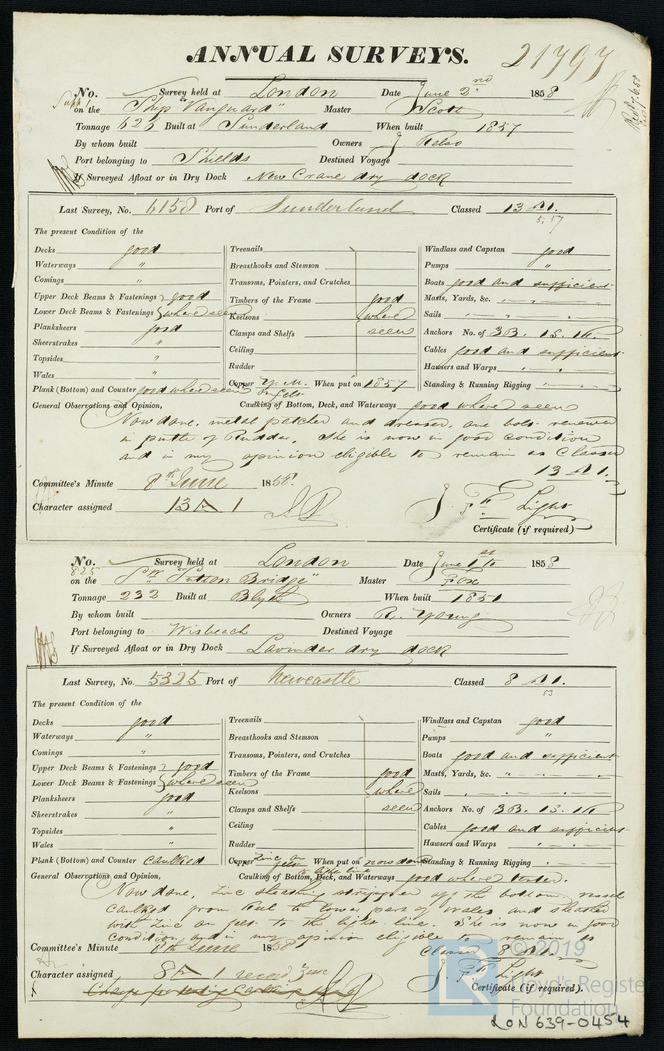 ANNUAL SURVEYS. 21797
No. Survey held at London Date June 2nd 1858
on the Ship "Vanguard" Master Scott
Tonnage 623 Built at Sunderland When built 1857
By whom built Owners J Kelso
Port belonging to Shields Destined Voyage
If Surveyed Afloat or in Dry Dock New Crane dry dock
Last Survey, No. 6158 Port of Sunderland Classed 13 A 1.
5.57
The present Condition of the
Decks good Treenails Windlass and Capstan good
Waterways " Breasthooks and Stemson Pumps "
Comings " Transoms, Pointers, and Crutches Boats good and sufficient
Upper Deck Beams & Fastenings good Timbers of the Frame good Masts, Yards, &c. "
Lower Deck Beams & Fastenings where seen Keelsons where Sails "
Planksheers good Clamps and Shelfs seen Anchors No. of 3B. 1S. 1K.
Sheerstrakes " Ceiling Cables good and sufficient
Topsides " Rudder Hawsers and Warps "
Wales " Copper Y.M. on felt When put on 1857 Standing & Running Rigging "
Plank (Bottom) and Counter good where seen
General Observations and Opinion, Caulking of Bottom, Deck, and Waterways good where seen
Now done, metal patched and dressed, one bolt renewed
in pintle of Rudder. She is now in good condition
and in my opinion eligible to remain as Classed
13 A 1.
Committee's Minute 8th June 1858.
Character assigned 13 A 1 J. F. Light
Certificate (if required)
No. 825 Survey held at London Date June 1st 1858
on the "Sutton Bridge" Master Fox
Tonnage 232 Built at Blyth When built 1851
By whom built Owners R. Young
Port belonging to Wisbeach Destined Voyage
If Surveyed Afloat or in Dry Dock Lavinder dry dock
Last Survey, No. 5325 Port of Newcastle Classed 8 A 1.
53
The present Condition of the
Decks good Treenails Windlass and Capstan good
Waterways " Breasthooks and Stemson Pumps "
Comings " Transoms, Pointers, and Crutches Boats good and sufficient
Upper Deck Beams & Fastenings good Timbers of the Frame good Masts, Yards, &c. "
Lower Deck Beams & Fastenings where seen Keelsons where Sails "
Planksheers good Clamps and Shelfs seen Anchors No. of 3B. 1S. 1K
Sheerstrakes " Ceiling Cables good and sufficient
Topsides " Rudder Hawsers and Warps "
Wales " Copper Zinc on felt to light line When put on now done Standing & Running Rigging "
Plank (Bottom) and Counter Caulked
General Observations and Opinion, Caulking of Bottom, Deck, and Waterways good where seen.
Now done, Zinc sheathing stripped off the bottom,
caulked from keel to lower part of wales and sheathed
with Zinc on felt to the light line. She is now in good
condition and in my opinion eligible to remain as
Classed 8 A 1.
Committee's Minute 8th June 1858
Character assigned 8 A 1 record Zinc J. F. Light
Certificate (if required).
© 2019
Lloyd's Register
Foundation
LON 639-0454